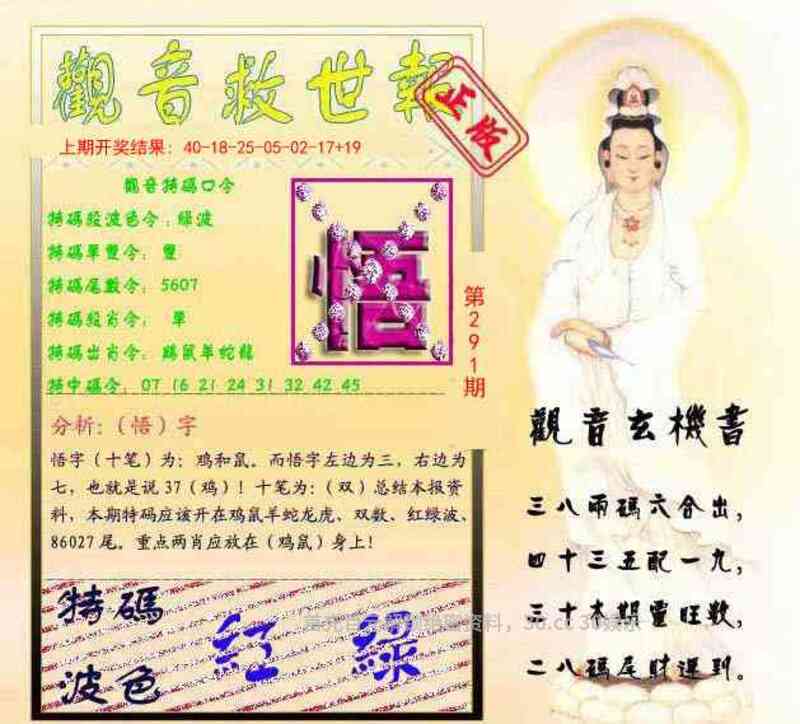 觀音救世報
正版
上期开奖结果：40-18-25-05-02-17+19
觀音特碼口令
特碼段波色令：绿波
特碼單雙令：雙
特碼尾數令：5607
特碼段肖令：單
特碼出肖令：鷄鼠羊蛇龍
特中碼令：07 16 21 24 31 32 42 45
悟
第291期
分析:（悟）字
悟字（十笔）为：鸡和鼠。而悟字左边为三，右边为
七，也就是说37（鸡）！十笔为:（双）总结本报资
料，本期特码应该开在鸡鼠羊蛇龙虎、双数、红绿波、
86027尾。重点两肖应放在（鸡鼠）身上！
特碼
波色
紅 綠
觀音玄機書
三八兩碼六合出，
四十三五配一九，
三十本期靈旺数，
二八碼尾財運到。